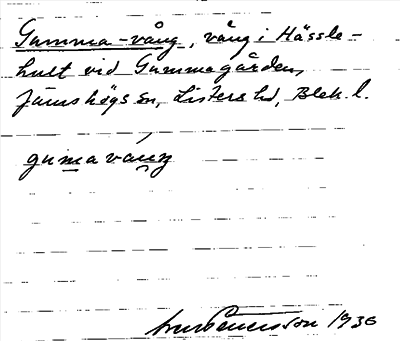 Gumma-vång, vång i Hässle-
hult vid Gummagården,
Jämshögs sn, Listers hd, Blek. l.
gumavaŋ
1936